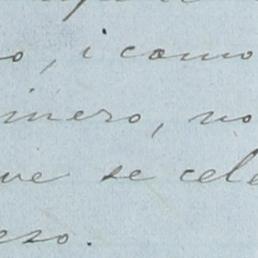 o, i como
imero, no
ue se cele
eso.